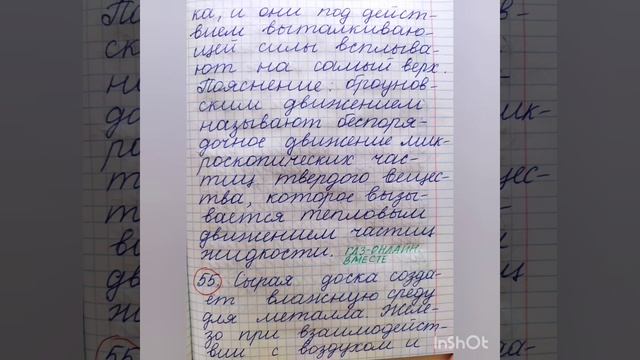 ка, и они под дейст-
вием выталкиваю-
щей силы всплыва-
ют на самый верх.
Пояснение: броунов-
ским движением
называют беспоря-
дочное движение мик-
роскопических час-
тиц твердого вещес-
тва, которое вызы-
вается тепловым
движением частиц
жидкости. ГДЗ-ОНЛАЙН.
ВМЕСТЕ
55. Сырая доска созда-
ет влажную среду
для металла. Желе-
зо при взаимодейст-
вии с воздухом и
InShOt